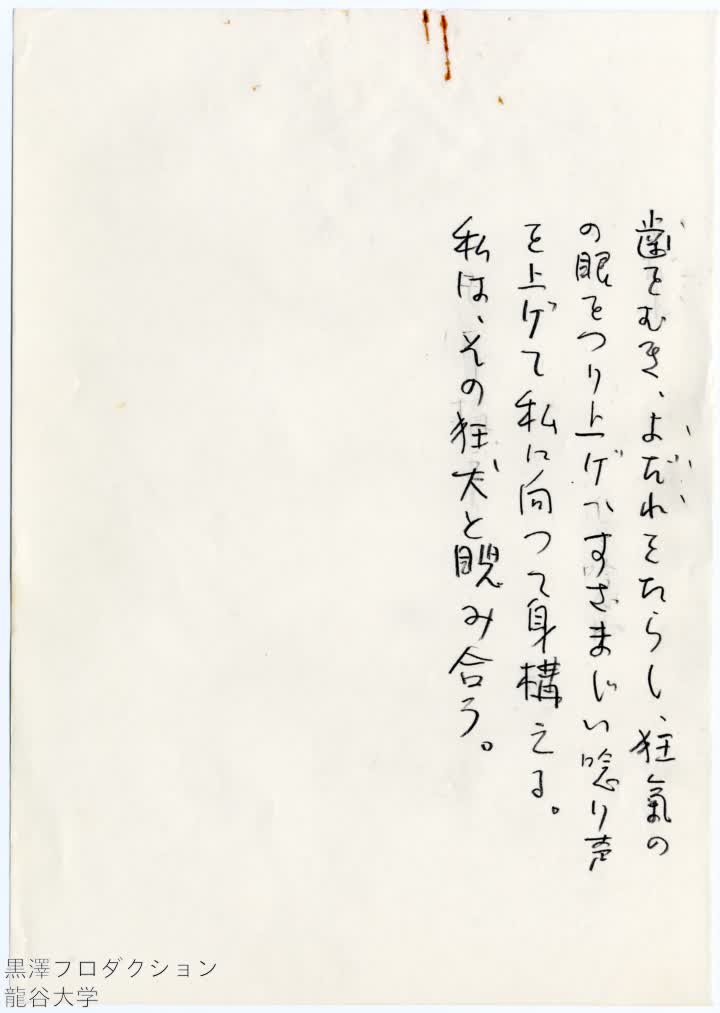 歯をむき、よだれをたらし、狂氣の
の眼をつり上げ、すさまじい唸り声
を上げて私に向つて身構える。
私は、その狂犬と睨み合う。
黒澤プロダクション
龍谷大学